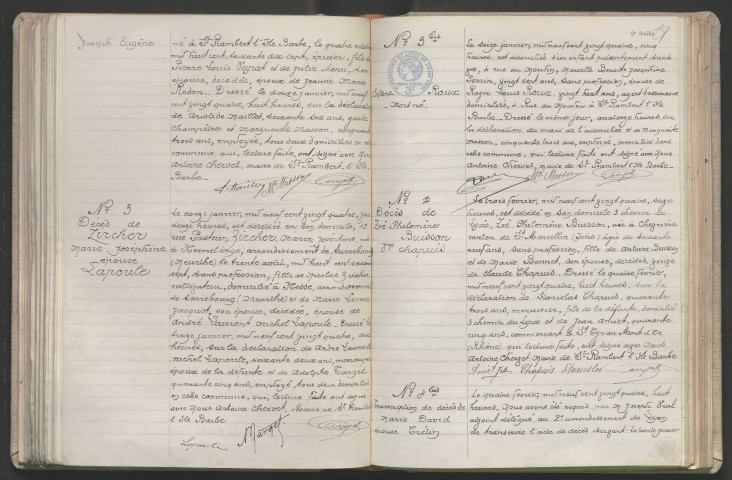 Joseph Eugène
né à St Rambert l'Ile Barbe, le quatre
mil huit cent soixante dix sept, épicier, fils de
Pierre Louis Veyrat et de Julie
épouse, décédés, époux de Jeanne Marie
Redon. Dressé le douze janvier, mil neuf
cent vingt quatre, huit heures, sur la déclaration
de Aristide Maillet, soixante dix ans, garde
champêtre et Marguerite Masson, cinquante
trois ans, employée, tous deux domiciliés en cette
commune, qui, lecture faite, ont signé avec Nous
Antoine Chervet, maire de St Rambert l'Ile
Barbe
A. Maillet Mte Masson
No 3
Décès de
Zircher
Marie Joséphine
épouse
Lapoule
Le douze janvier, mil neuf cent vingt quatre,
douze heures, est décédée en son domicile,
rue Pasteur, Zircher, Marie Joséphine, née
à Hermelange, arrondissement de Sarrebourg
(Meurthe) le trente août, mil huit cent
sept, sans profession, fille de Nicolas Zircher,
cultivateur, domicilié à Hesse, arrondissement
de Sarrebourg (Meurthe) et de Marie Louise
Jacquot, son épouse, décédée, épouse de
André Laurent Michel Lapoule. Dressé le
treize janvier, mil neuf cent vingt quatre, dix
heures, sur la déclaration de André Laurent
Michel Lapoule, soixante deux ans,
époux de la défunte et de Adolphe Target
quarante cinq ans, employé tous deux domiciliés
en cette commune, qui, lecture faite ont signé
avec Nous Antoine Chervet, Maire de St Rambert
l'Ile Barbe
Lapoule
No 3 bis
Enfant Roux
mort né
Le seize janvier, mil neuf cent vingt quatre, cinq
heures, est accouchée d'un enfant présentement sans
vie, à rue du Moutin, Marcelle Benoite Joséphine
Perrin, vingt sept ans, sans profession, épouse de
Roger Louis Roux, vingt huit ans, agent d'assurance
domiciliés, à Rue du Moutin à St Rambert l'Ile
Barbe. Dressé le même jour, quatorze heures, sur
la déclaration du mari de l'accouchée et de Marguerite
Masson, cinquante trois ans, employée, domiciliée dans
cette commune, qui lecture faite ont signé avec Nous
Antoine Chervet, maire de St Rambert l'Ile Barbe
Mte Masson
No 4
Décès de
Zoé Philomène
Buisson
Vve Chapuis
Le trois février, mil neuf cent vingt quatre, seize
heures, est décédée en son domicile 3 chemin du
Lycée, Zoé Philomène Buisson, née à
canton de St Marcellin (Isère) âgée de soixante
neuf ans, sans profession, fille de Antoine Buisson
et de Marie Bonnet, son épouse, décédés, veuve
de Claude Chapuis. Dressé le quatre février,
mil neuf cent vingt quatre, huit heures, sur la
déclaration de Stanislas Chapuis, quarante
trois ans, menuisier, fils de la défunte, domicilié
3 chemin du Lycée et de Jean quarante
cinq ans, commerçant à St Cyr au Mont d'Or
(Rhône) qui lecture faite, ont signé avec Nous
Antoine Chervet Maire de St Rambert l'Ile Barbe
Chapuis Stanislas
No 4 bis
Transcription de décès de
Marie David
épouse
Le quatre février, mil neuf cent vingt quatre, huit
heures, Nous avons été requis par M. Joseph
agent délégué au 2e arrondissement de Lyon
de transcrire l'acte de décès suivant: Le trente janvier